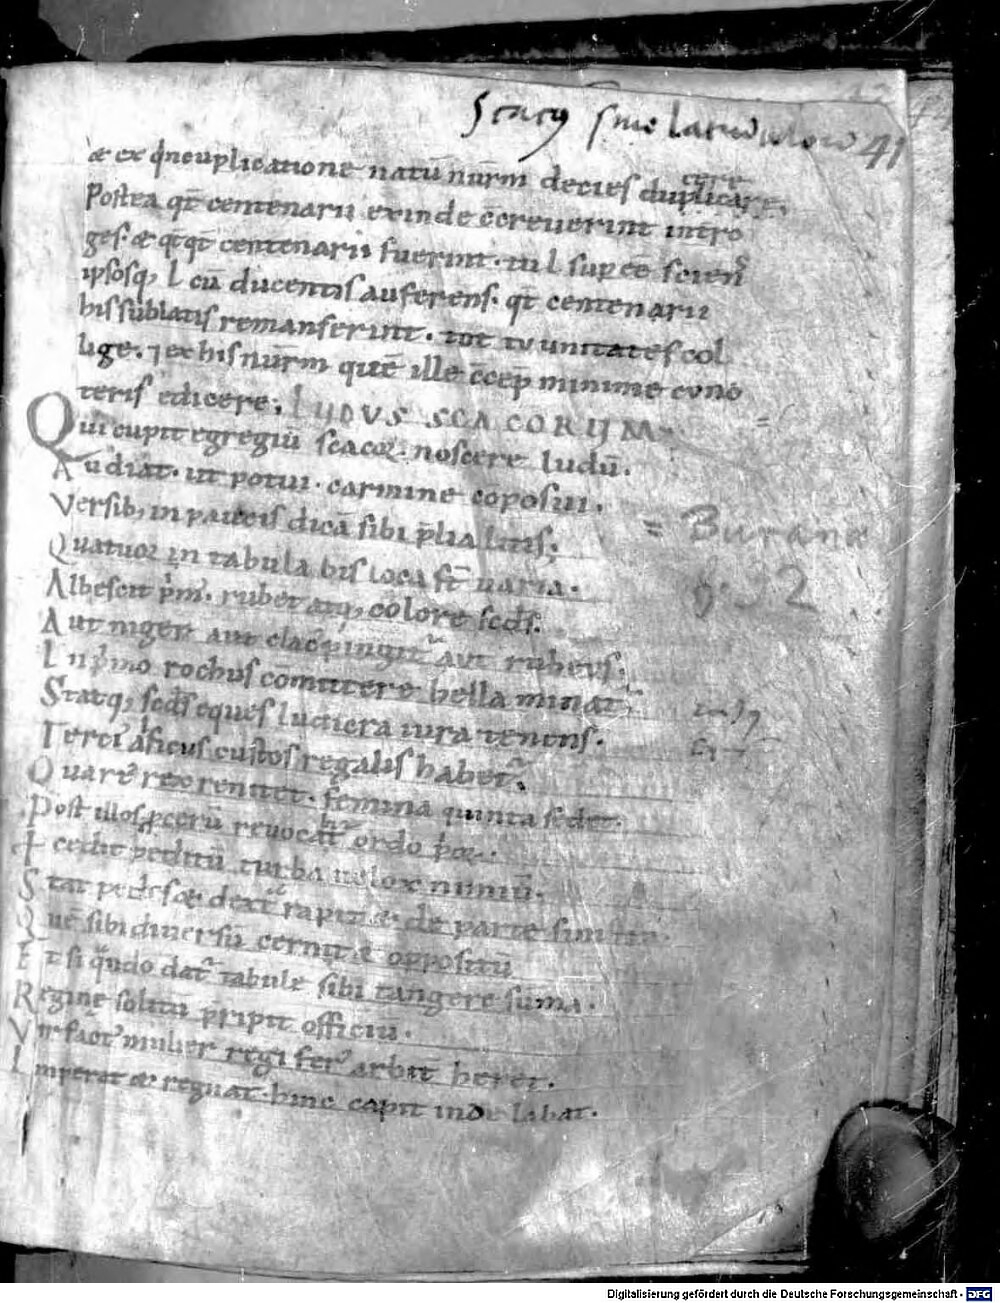 Stacy sine latrūculoru 41
cere
æ ex q̄ncuplicatione natū nūrm decies duplicare.
Postea qt̄ centenarii exinde c̄creuerint intr̄o
ges. æ qt̄qt̄ centenarii fuerint. in l sup eē sciens
ipsosq, L cū ducentis auferens. qt̄ centenarii
his sublatis remanserint. tot tu unitates col
lige. ⁊ ex his nūrm quē ille c̄cep̄ minime cunc
teris edicere; LUDVS SCACORUM.
Qui cupit egregiū scacoꝝ. noscere ludū.
Audiat. ut potui. carmine cōposui.
Versib, in paucis dicā sibi p̄lia litis;
Quatuor in tabula bis loca st̄ uaria.
Albescit p̍m'. rubet atq, colore scds.
Aut niger aut glac' pingit' aut rubeus.
In p̍mo rochus cōmittere bella minat'.
Statq, scds eques lucticra iura tenens.
Terci' alficus custos regalis habet'.
Quart' rex renitet. femina quinta sedet.
Post illos pcerū reuocat' ordo p̍oꝝ.
Icedit peditū turba uelox nimiū.
Stat pedes æ dext' rapit æ de parte sinistr.
Quē sibi diuersū cernit & oppositū
Et si q̄ndo dat' tabule sibi tangere sūma.
Regine solitū p̄ripit officiū.
Vir fact' mulier regi fer' arbit' heret.
Imperat æ regnat. hinc capit inde labat.
= Burana